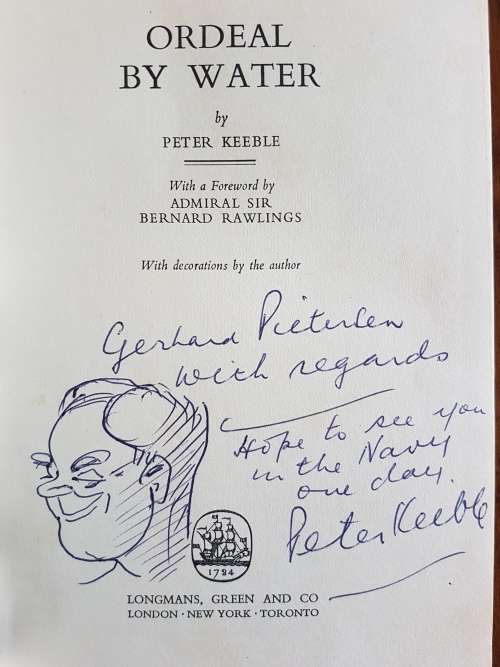 ORDEAL
BY WATER
by
PETER KEEBLE
With a Foreword by
ADMIRAL SIR
BERNARD RAWLINGS
With decorations by the author
Gerhard Pietersen
with regards
Hope to see you
in the Navy
one day.
Peter Keeble
1724
LONGMANS, GREEN AND CO
LONDON · NEW YORK · TORONTO